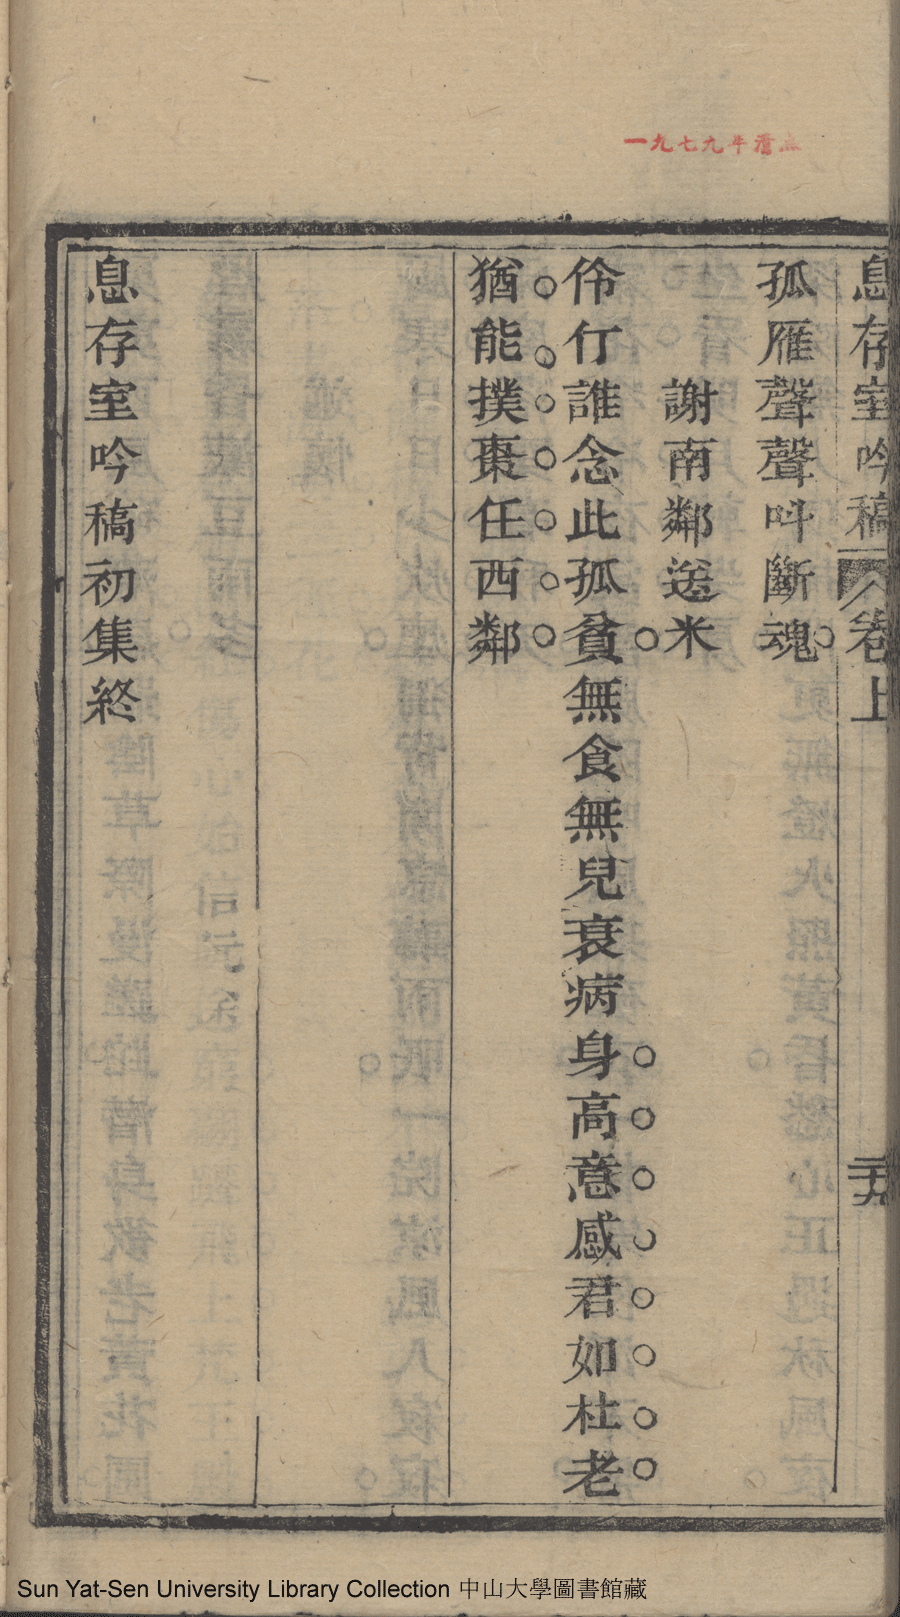 一九七九年清点
息存室吟稿 卷上 二十九
孤雁聲聲呌斷魂
謝南鄰送米
伶仃誰念此孤貧無食無兒衰病身高意感君如杜老
猶能撲棗任西鄰
息存室吟稿初集終
Sun Yat-Sen University Library Collection 中山大學圖書館藏